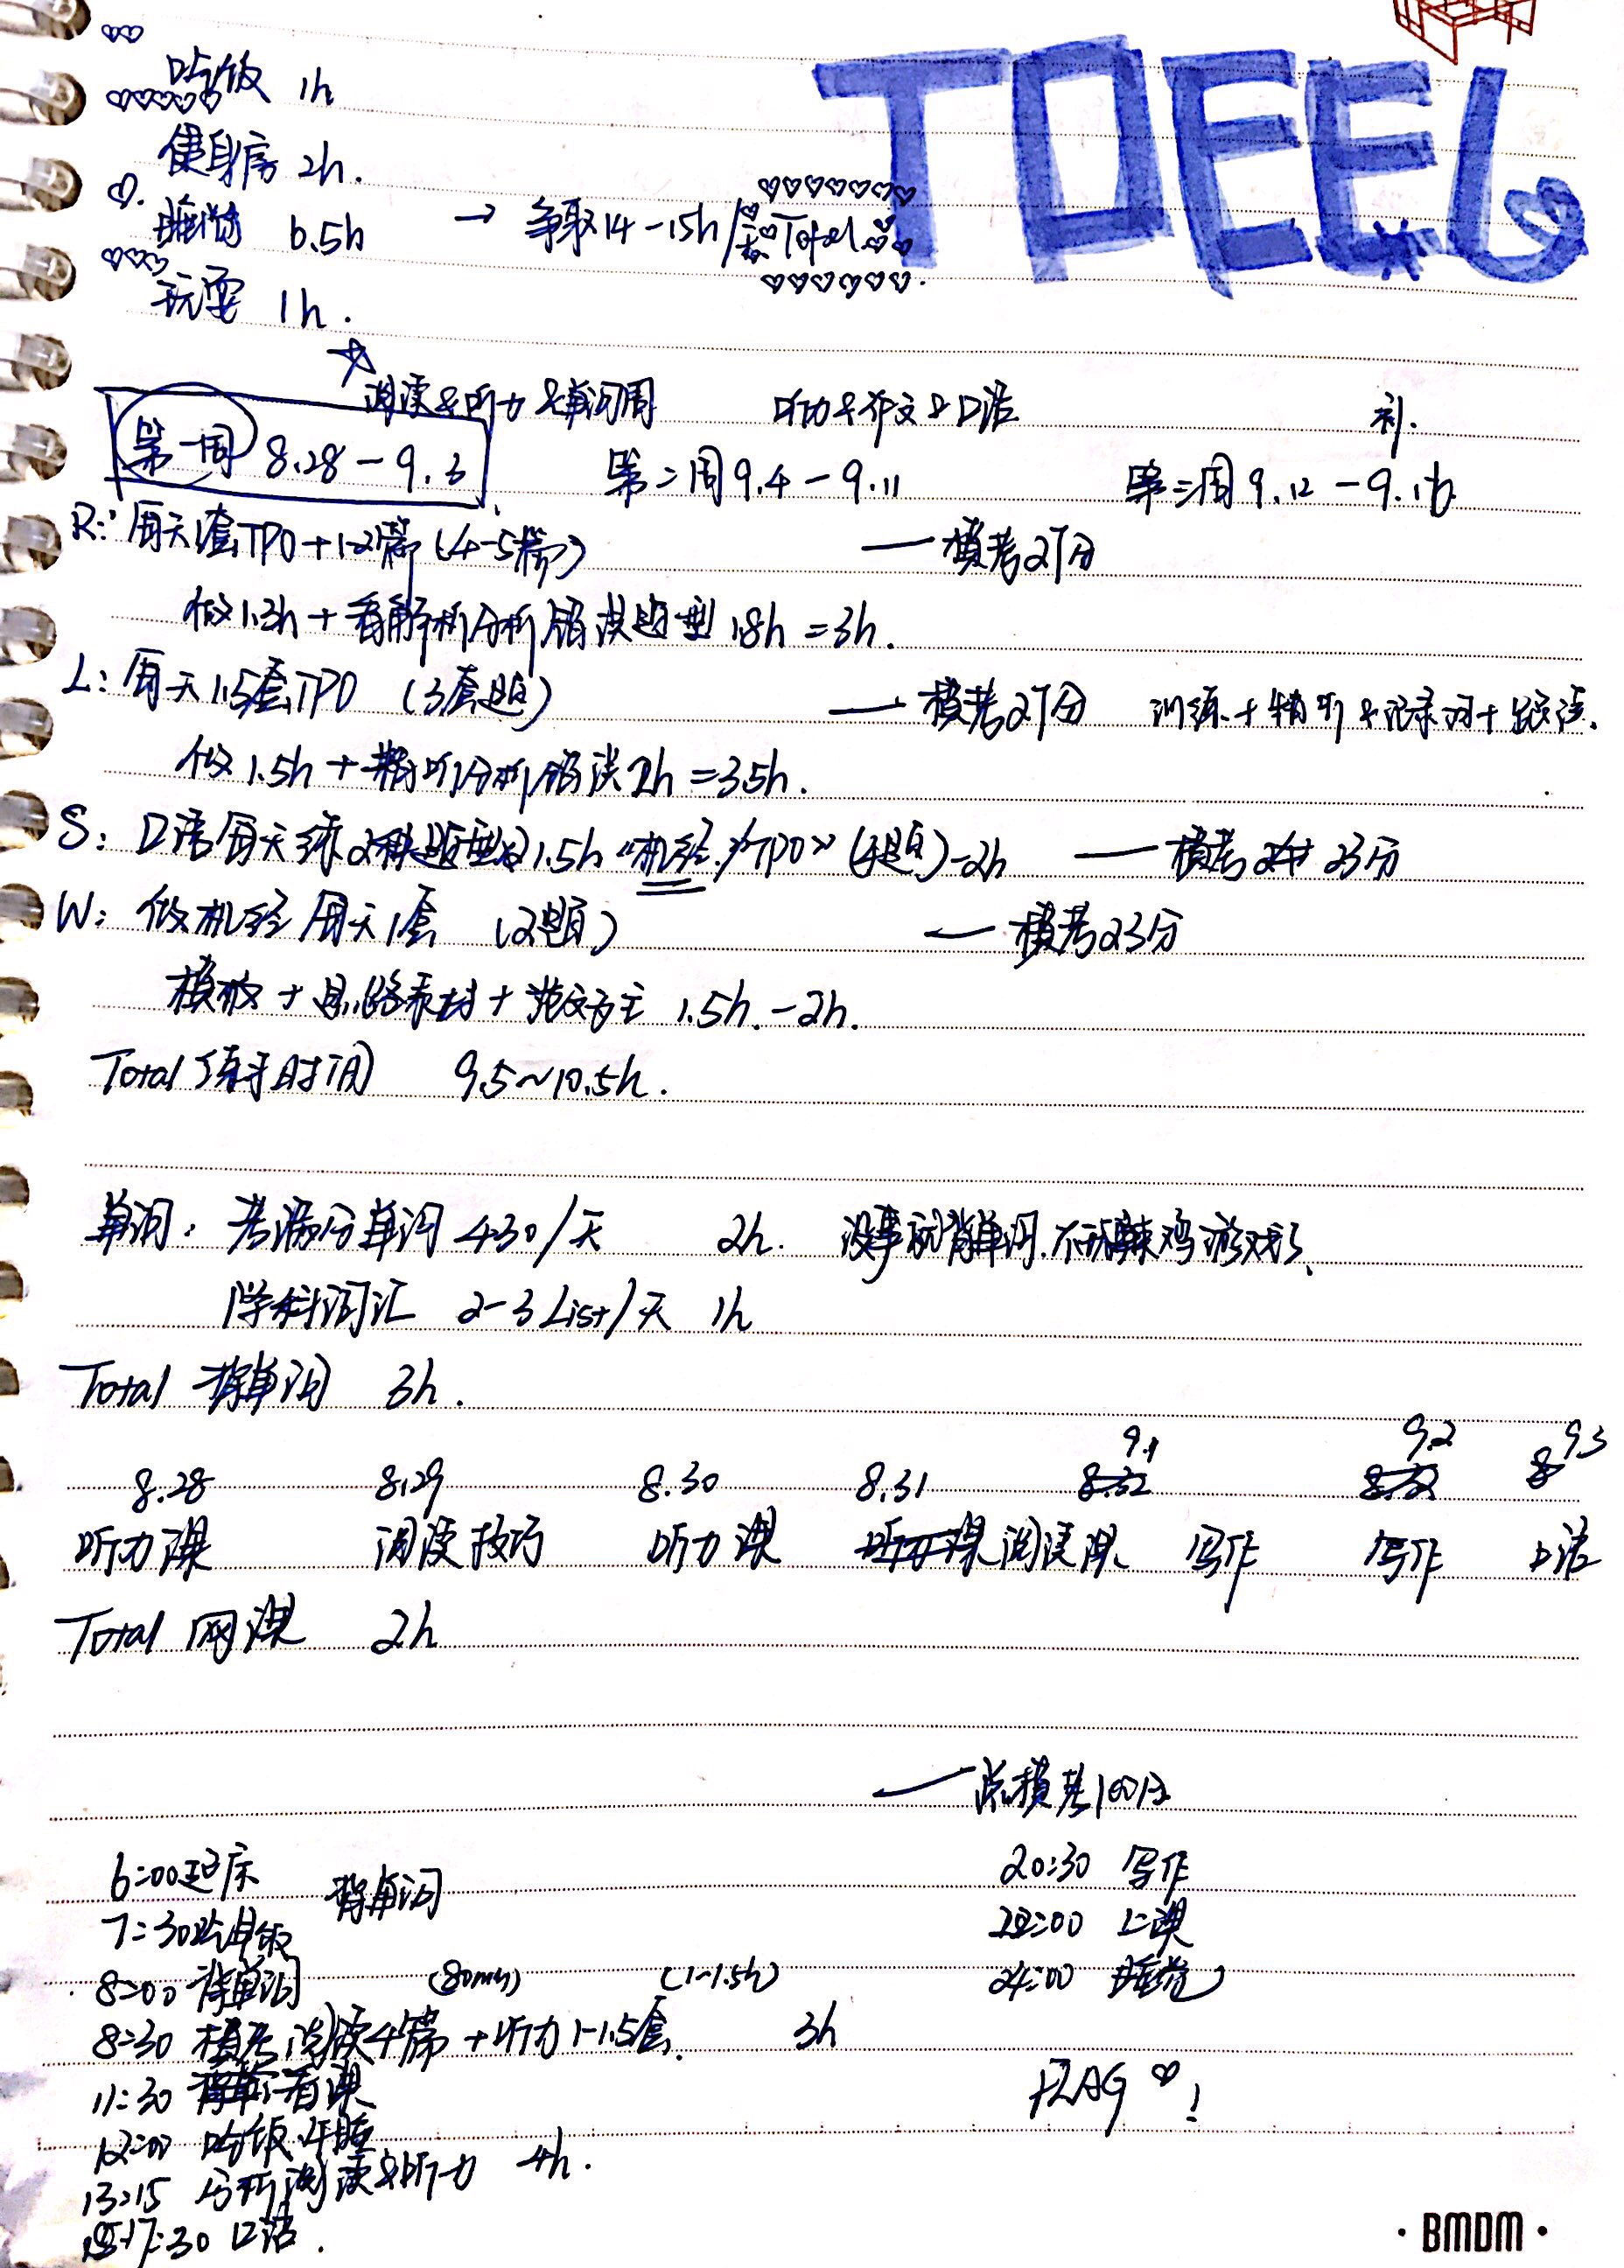 TOEFL
吃饭 1h
健身房 2h.
睡觉 6.5h → 争取14-15h/天 Toefl
玩耍 1h.
阅读&听力&单词周 听力&作文&口语 补.
第一周 8.28-9.3 第二周 9.4-9.11 第三周 9.12-9.16
R: 每天1套TPO+1-2篇(4-5篇) — 模考27分
做1.3h+看解析分析错误题型1.8h=3h.
L: 每天1.5套TPO (3套题) — 模考27分 训练+精听&记录词+跟读.
做1.5h+精听分析错误2h=3.5h.
S: 口语每天练2种题型 1.5h "机经 TPO" (4题)-2h — 模考 23分
W: 做机经每天1套 (2题) — 模考23分
模板+思路素材+范文 1.5h.-2h.
Total 练习时间 9.5~10.5h.
单词: 考满分单词 430/天 2h. 没事就背单词.不玩辣鸡游戏了.
学科词汇 2-3List/天 1h
Total 背单词 3h.
8.28 8.29 8.30 8.31 9.1 9.2 9.3
听力课 阅读技巧 听力课 听力课 阅读课 写作 写作 口语
Total 网课 2h
— 总模考100分
6:00起床 背单词
7:30吃早饭
8:00 背单词 (80min) (1-1.5h)
8:30 模考阅读4篇+听力1-1.5套. 3h
11:30 看课
12:00 吃饭.午睡
13:15 分析阅读&听力 4h.
17:30 口语.
20:30 写作
22:00 上课
24:00 睡觉
FLAG ♡!
· BMDM ·